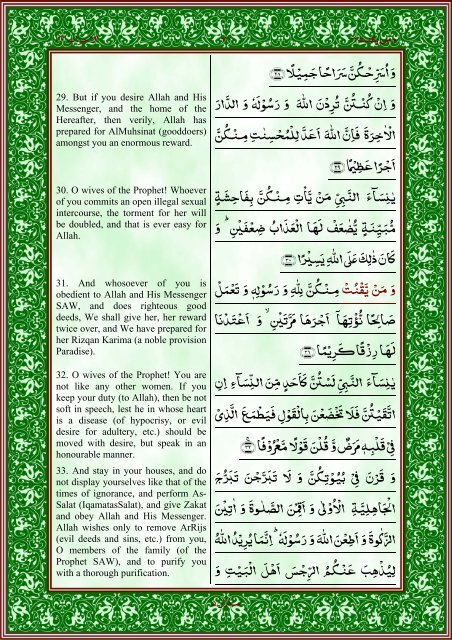 29. But if you desire Allah and His
Messenger, and the home of the
Hereafter, then verily, Allah has
prepared for AlMuhsinat (gooddoers)
amongst you an enormous reward.
30. O wives of the Prophet! Whoever
of you commits an open illegal sexual
intercourse, the torment for her will
be doubled, and that is ever easy for
Allah.
31. And whosoever of you is
obedient to Allah and His Messenger
SAW, and does righteous good
deeds, We shall give her, her reward
twice over, and We have prepared for
her Rizqan Karima (a noble provision
Paradise).
32. O wives of the Prophet! You are
not like any other women. If you
keep your duty (to Allah), then be not
soft in speech, lest he in whose heart
is a disease (of hypocrisy, or evil
desire for adultery, etc.) should be
moved with desire, but speak in an
honourable manner.
33. And stay in your houses, and do
not display yourselves like that of the
times of ignorance, and perform As-
Salat (IqamatasSalat), and give Zakat
and obey Allah and His Messenger.
Allah wishes only to remove ArRijs
(evil deeds and sins, etc.) from you,
O members of the family (of the
Prophet SAW), and to purify you
with a thorough purification.
وَ اُسَرِّحْكُنَّ سَرَاحًا جَمِيْلًا ﴿۲۸﴾
وَ اِنْ كُنْـتُنَّ تُرِدْنَ اللّٰهَ وَ رَسُوْلَهٗ وَ الدَّارَ
الْاٰخِرَةَ فَاِنَّ اللّٰهَ اَعَدَّ لِلْمُحْسِنٰتِ مِنْكُنَّ
اَجْرًا عَظِيْمًا ﴿۲۹﴾
يٰنِسَآءَ النَّبِيِّ مَنْ يَّاْتِ مِنْكُنَّ بِفَاحِشَةٍ
مُّبَيِّنَةٍ يُّضٰعَفْ لَهَا الْعَذَابُ ضِعْفَيْنِ ؕ وَ
كَانَ ذٰلِكَ عَلَى اللّٰهِ يَسِيْرًا ﴿۳۰﴾
وَ مَنْ يَّقْنُتْ مِنْكُنَّ لِلّٰهِ وَ رَسُوْلِهٖ وَ تَعْمَلْ
صَالِحًا نُّؤْتِهَاۤ اَجْرَهَا مَرَّتَيْنِ ۙ وَ اَعْتَدْنَا
لَهَا رِزْقًا كَرِيْمًا ﴿۳۱﴾
يٰنِسَآءَ النَّبِيِّ لَسْتُنَّ كَاَحَدٍ مِّنَ النِّسَآءِ اِنِ
اتَّقَيْتُنَّ فَلَا تَخْضَعْنَ بِالْقَوْلِ فَيَطْمَعَ الَّذِيْ
فِيْ قَلْبِهٖ مَرَضٌ وَّ قُلْنَ قَوْلًا مَّعْرُوْفًا ﴿۳۲﴾
وَ قَرْنَ فِيْ بُيُوْتِكُنَّ وَ لَا تَبَرَّجْنَ تَبَرُّجَ
الْجَاهِلِيَّةِ الْاُوْلٰى وَ اَقِمْنَ الصَّلٰوةَ وَ اٰتِيْنَ
الزَّكٰوةَ وَ اَطِعْنَ اللّٰهَ وَ رَسُوْلَهٗ ؕ اِنَّمَا يُرِيْدُ اللّٰهُ
لِيُذْهِبَ عَنْكُمُ الرِّجْسَ اَهْلَ الْبَيْتِ وَ